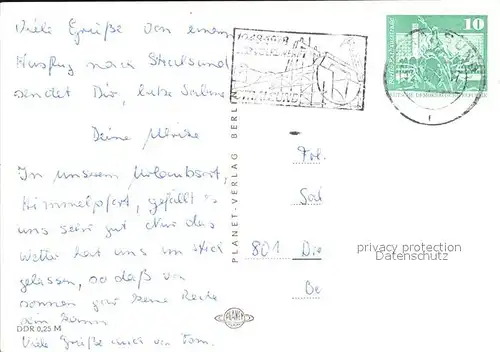 Viele Grüße von einem
Ausflug nach Stralsund
sendet Dir, liebe Sabine
Deine Ulrike
In unserem Urlaubsort,
Himmelpfort, gefällt es
uns sehr gut. Nur das
Wetter hat uns im Stich
gelassen, so daß von
sonnen gar keine Rede
sein kann.
Viele Grüße auch von Tom.
DDR 0,25 M
PLANET-VERLAG BERLIN
PLANET
10
Frl.
801
privacy protection
Datenschutz